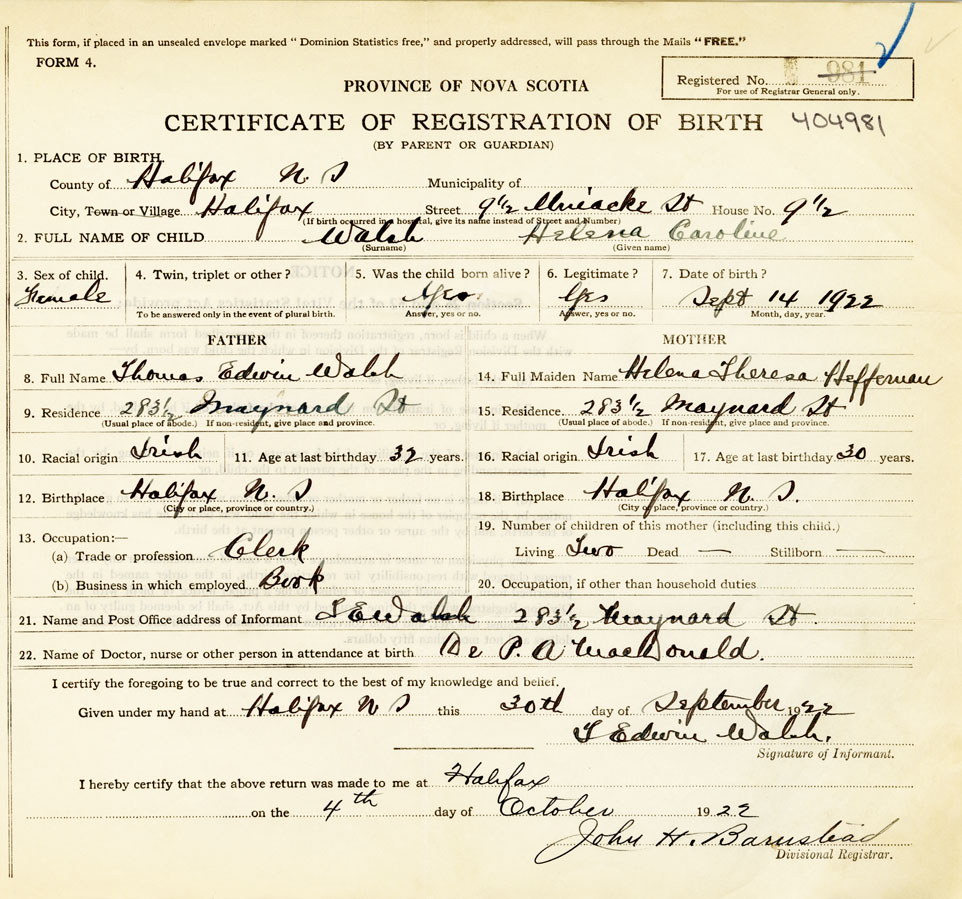 This form, if placed in an unsealed envelope marked “ Dominion Statistics free,” and properly addressed, will pass through the Mails “FREE.”
FORM 4.
Registered No. 981
For use of Registrar General only.
PROVINCE OF NOVA SCOTIA
CERTIFICATE OF REGISTRATION OF BIRTH 404981
(BY PARENT OR GUARDIAN)
1. PLACE OF BIRTH.
County of Halifax N. S Municipality of
City, Town or Village Halifax Street 9 1/2 Uniacke St House No. 9 1/2
(If birth occurred in a hospital, give its name instead of Street and Number)
2. FULL NAME OF CHILD Walsh Helena Caroline
(Surname) (Given name)
3. Sex of child. 4. Twin, triplet or other? 5. Was the child born alive? 6. Legitimate? 7. Date of birth?
Female Yes Yes Sept 14 1922
To be answered only in the event of plural birth. Answer, yes or no. Answer, yes or no. Month, day, year.
FATHER MOTHER
8. Full Name Thomas Edwin Walsh 14. Full Maiden Name Helena Theresa Heffernan
9. Residence 283 1/2 Maynard St 15. Residence 283 1/2 Maynard St
(Usual place of abode.) If non-resident, give place and province. (Usual place of abode.) If non-resident, give place and province.
10. Racial origin Irish 11. Age at last birthday 32 years. 16. Racial origin Irish 17. Age at last birthday 30 years.
12. Birthplace Halifax N. S 18. Birthplace Halifax N. S.
(City or place, province or country.) (City or place, province or country.)
13. Occupation:— 19. Number of children of this mother (including this child.)
(a) Trade or profession Clerk Living Two Dead — Stillborn —
(b) Business in which employed Book 20. Occupation, if other than household duties
21. Name and Post Office address of Informant T E Walsh 283 1/2 Maynard St.
22. Name of Doctor, nurse or other person in attendance at birth Dr P. A MacDonald.
I certify the foregoing to be true and correct to the best of my knowledge and belief.
Given under my hand at Halifax N S this 30th day of September 1922
T Edwin Walsh.
Signature of Informant.
I hereby certify that the above return was made to me at Halifax
on the 4th day of October 1922
John H. Barnstead
Divisional Registrar.